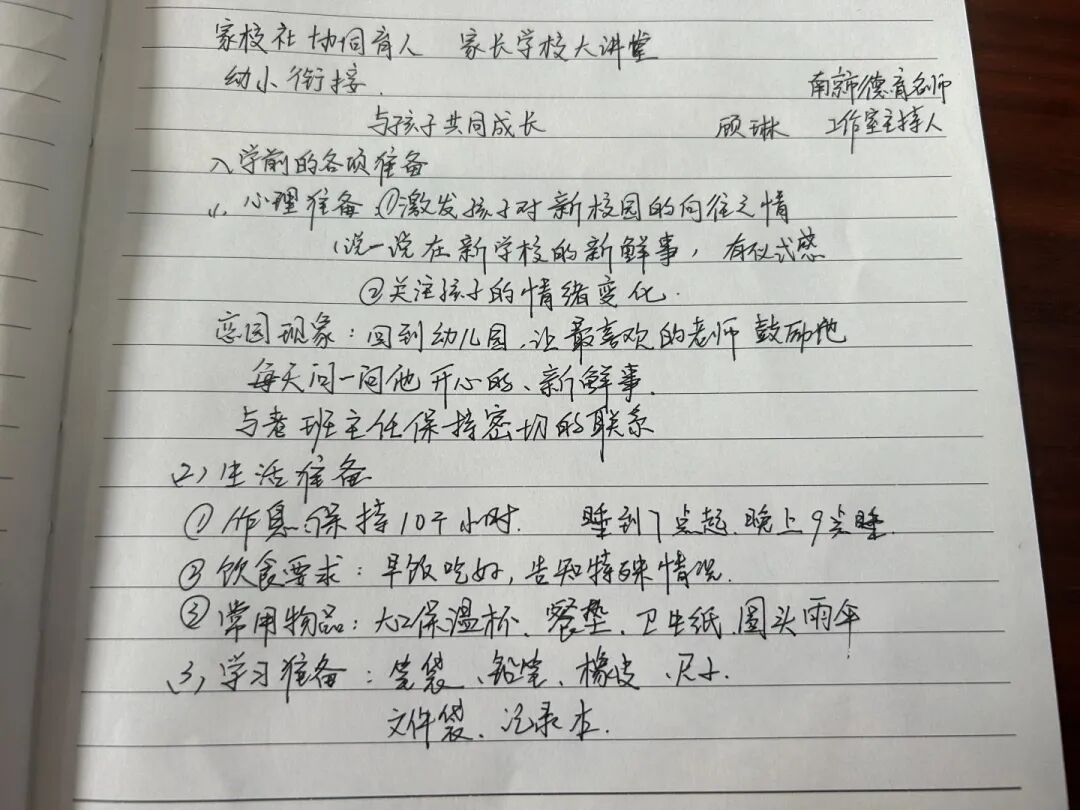 家校社协同育人 家长学校大讲堂
幼小衔接. 南京市德育名师
与孩子共同成长 顾琳 工作室主持人
入学前的各项准备
(1)、心理准备:①激发孩子对新校园的向往之情
(说一说在新学校的新鲜事,有仪式感
②关注孩子的情绪变化.
恋园现象:回到幼儿园,让最喜欢的老师鼓励他
每天问一问他开心的、新鲜事.
与老班主任保持密切的联系
(2)生活准备
①作息:保持10个小时. 睡到7点起.晚上9点睡.
②饮食要求:早饭吃好,告知特殊情况.
③常用物品:大口保温杯、餐垫、卫生纸.圆头雨伞
(3)学习准备:笔袋、铅笔、橡皮、尺子.
文件袋、记录本.